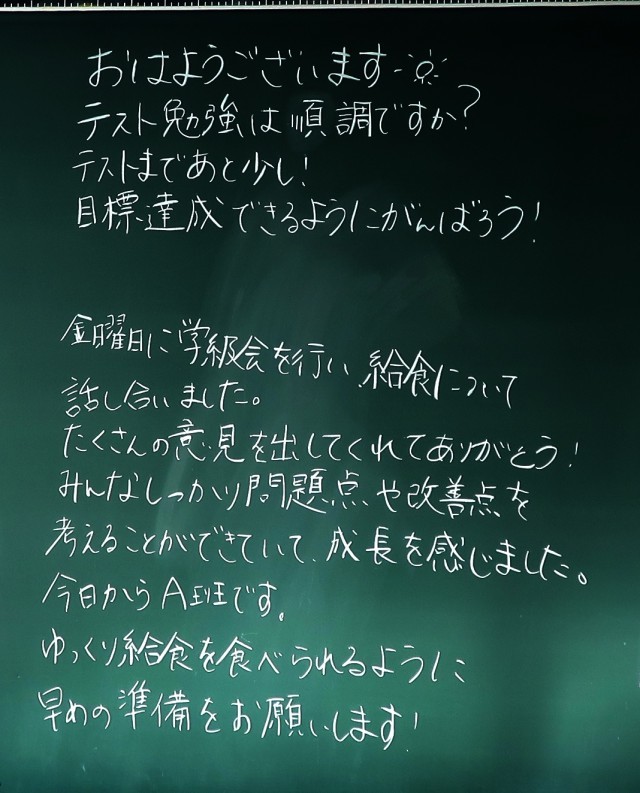 おはようございます
テスト勉強は順調ですか?
テストまであと少し!
目標達成できるようにがんばろう!
金曜日に学級会を行い、給食について
話し合いました。
たくさんの意見を出してくれてありがとう!
みんなしっかり問題点や改善点を
考えることができていて、成長を感じました。
今日からA班です。
ゆっくり給食を食べられるように
早めの準備をお願いします!